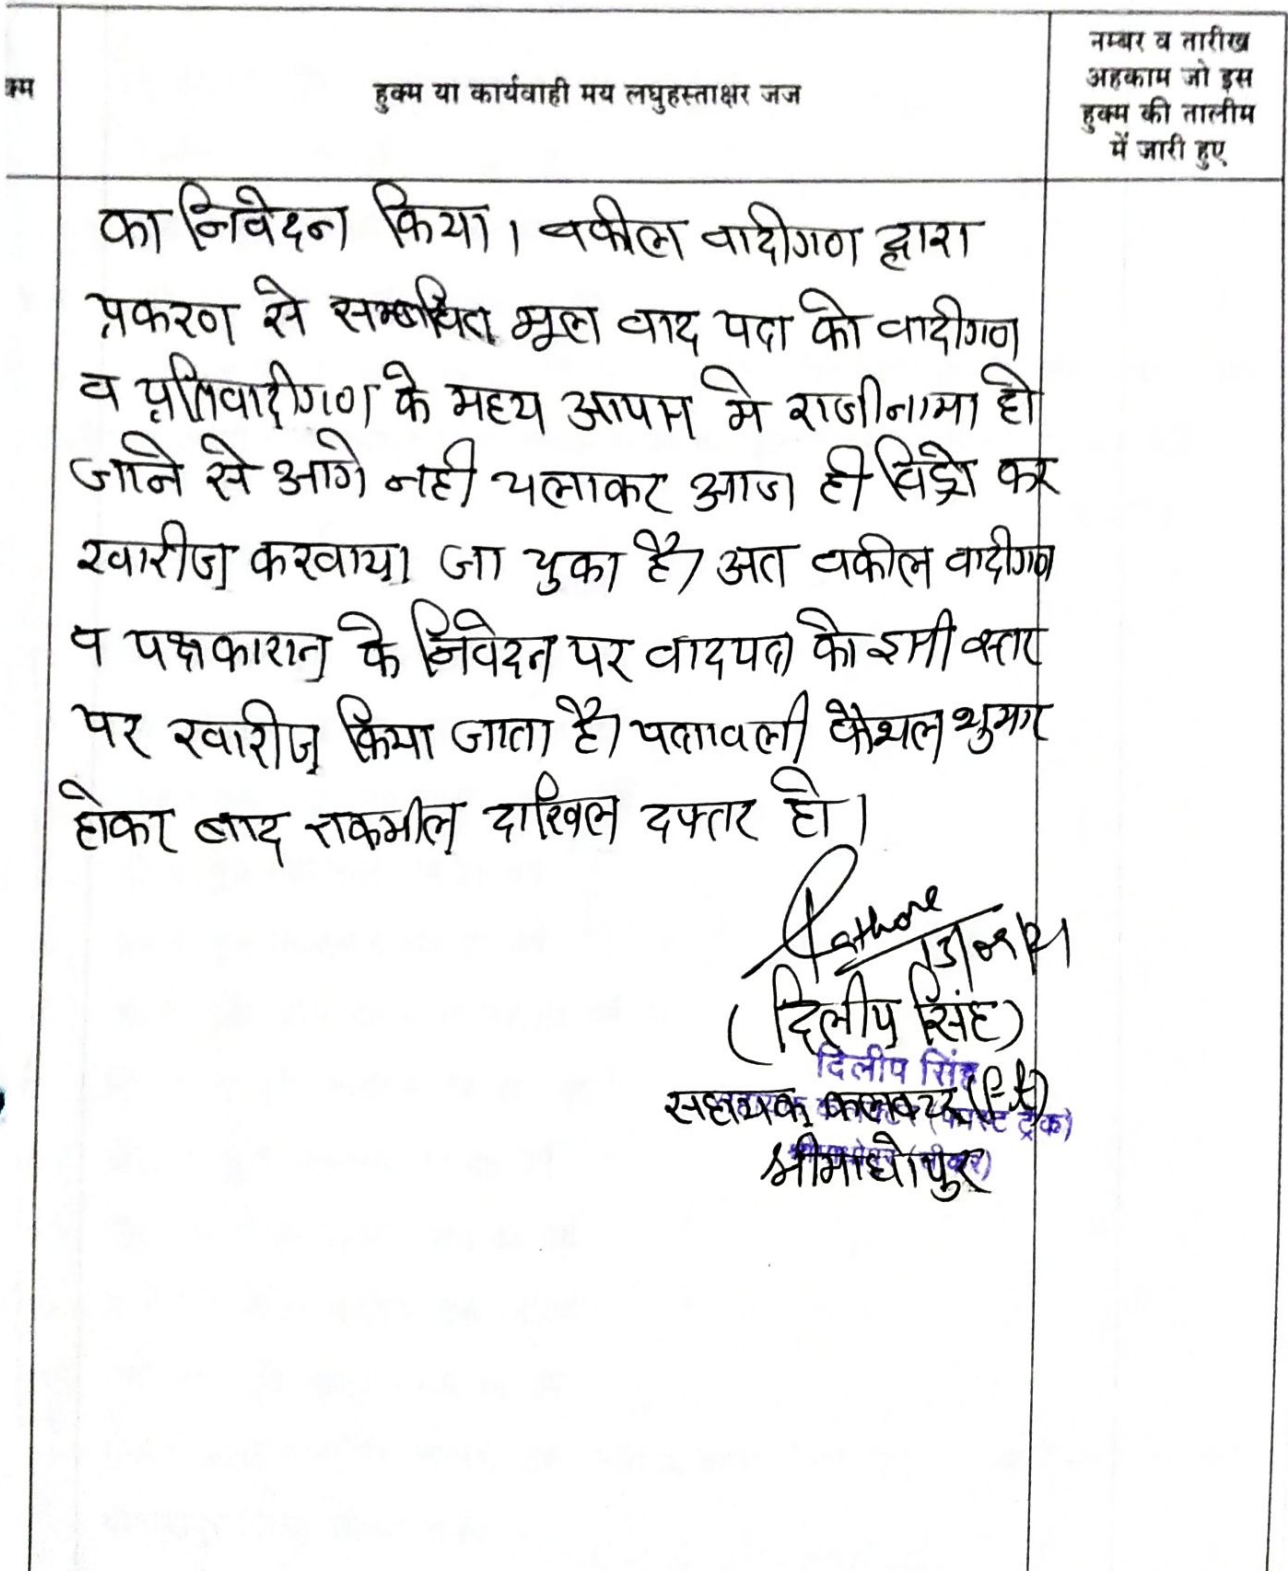 क्म
हुक्म या कार्यवाही मय लघुहस्ताक्षर जज
नम्बर व तारीख
अहकाम जो इस
हुक्म की तालीम
में जारी हुए
का निवेदन किया। वकील वादीगण द्वारा
प्रकरण से सम्बंधित मूल वाद पत्र को वादीगण
व प्रतिवादीगण के मध्य आपस मे राजीनामा हो
जाने से आगे नही चलाकर आज ही विड्रो कर
खारीज करवाया जा चुका है। अत वकील वादीगण
व पक्षकारान के निवेदन पर वादपत्र को इसी स्तर
पर खारीज किया जाता है। पत्रावली फैशल शुमार
होकर बाद तकमील दाखिल दफ्तर हो।
Rathore
(दिलीप सिंह)
दिलीप सिंह
सहायक कलक्टर
(फास्ट ट्रेक)
श्रीमाधोपुर